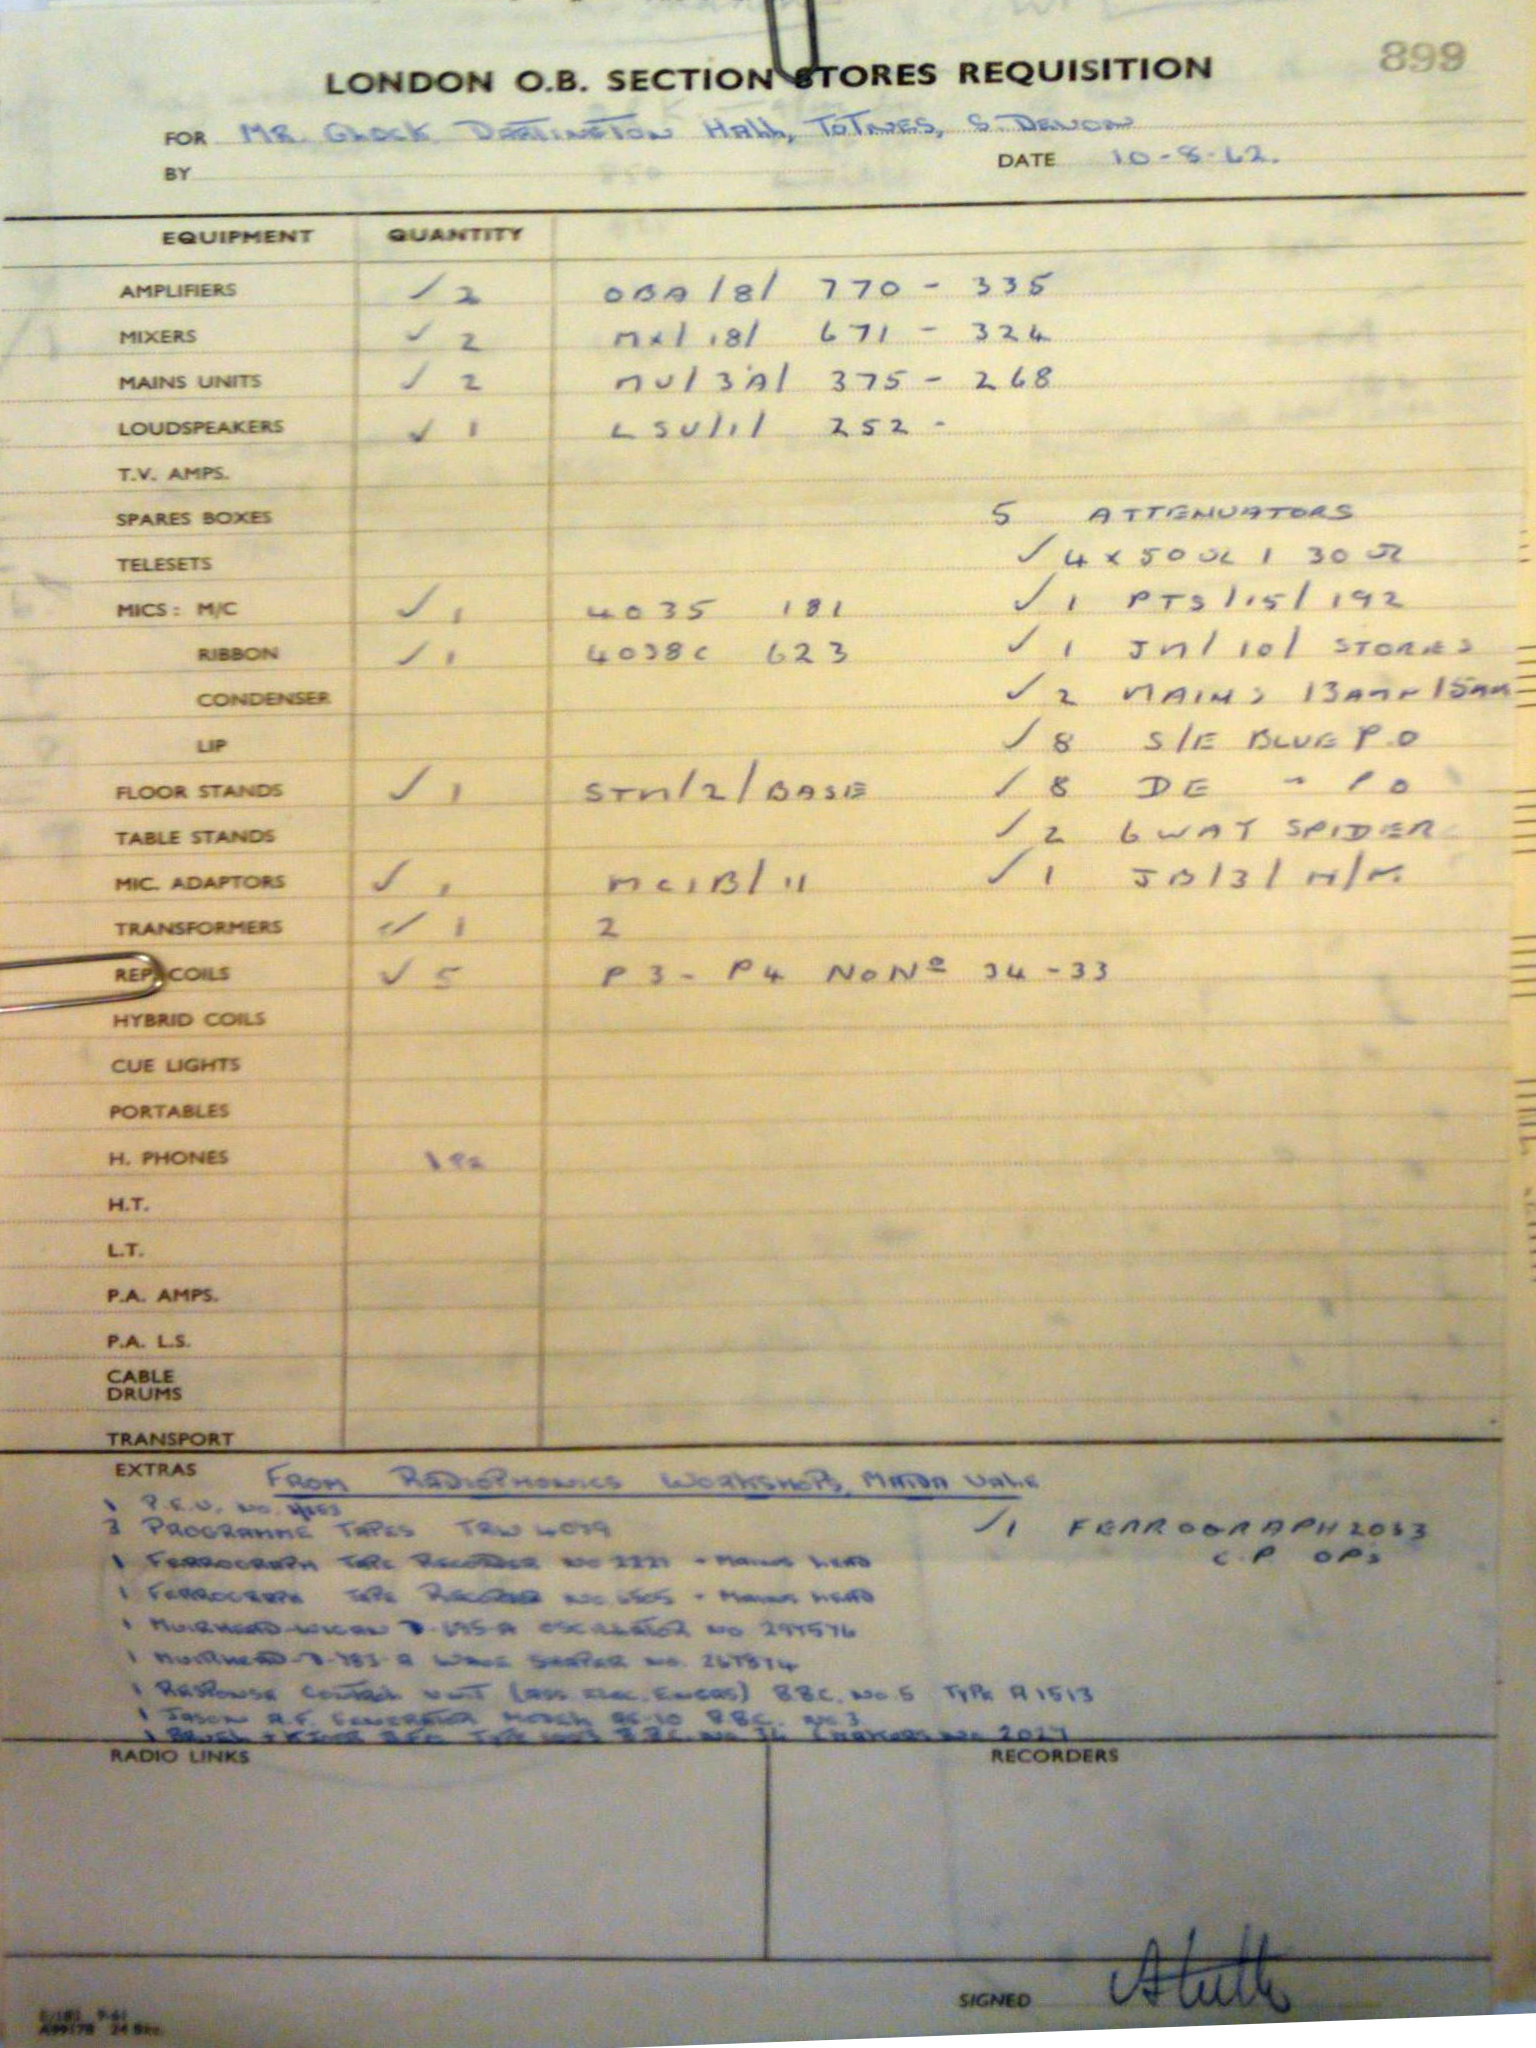 899
LONDON O.B. SECTION STORES REQUISITION
FOR MR. GLOCK DARTINGTON HALL, TOTNES, S. DEVON
BY
DATE 10-8-62.
EQUIPMENT QUANTITY
AMPLIFIERS ✓ 2 OBA/8/ 770 - 335
MIXERS ✓ 2 MX/18/ 671 - 324
MAINS UNITS ✓ 2 MU/3A/ 375 - 268
LOUDSPEAKERS ✓ 1 LSU/1/ 252 -
T.V. AMPS.
SPARES BOXES 5 ATTENUATORS
TELESETS ✓ 4 x 50 Ω 1 30 Ω
MICS: M/C ✓ 1 4035 181 ✓ 1 PTS/15/192
RIBBON ✓ 1 4038C 623 ✓ 1 JN/10/ STORES
CONDENSER ✓ 2 MAINS 13AMP 15AM
LIP ✓ 8 S/E BLUE P.O
FLOOR STANDS ✓ 1 STN/2/BASE ✓ 8 DE " PO
TABLE STANDS ✓ 2 6 WAY SPIDER
MIC. ADAPTORS ✓ 1 MC1B/11 ✓ 1 JB/3/
TRANSFORMERS ✓ 1 2
REP. COILS ✓ 5 P3 - P4 NO Nº 34-33
HYBRID COILS
CUE LIGHTS
PORTABLES
H. PHONES 1 PR
H.T.
L.T.
P.A. AMPS.
P.A. L.S.
CABLE
DRUMS
TRANSPORT
EXTRAS FROM RADIOPHONICS WORKSHOPS, MAIDA VALE
1 P.E.U. NO.
3 PROGRAMME TAPES TRW 4079 ✓1 FERROGRAPH 2033
C.P OPS
1 FERROGRAPH TAPE RECORDER NO 2221 + MAINS LEAD
1 FERROGRAPH TAPE RECORDER NO. + MAINS LEAD
1 MUIRHEAD-WIGAN D-695-A OSCILLATOR NO 297576
1 MUIRHEAD-D-783-A WAVE SHAPER NO.
1 RESPONSE CONTROL UNIT (ASS. ELEC. ENGRS) BBC. NO. 5 TYPE A 1513
1 JASON A.F. GENERATOR MODEL AG-10 BBC. NO. 3
1 BRUEL + KJAER B.B.C. NO. (MAKERS NO. 2027
RADIO LINKS
RECORDERS
SIGNED